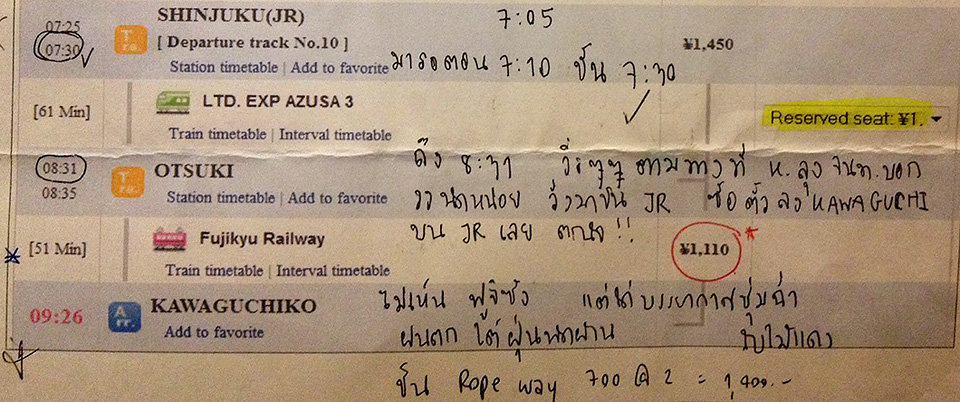 07:25 SHINJUKU(JR) 7:05
07:30 [ Departure track No.10 ] ¥1,450
Station timetable | Add to favorite มารอตอน 7:10 ขึ้น 7:30
[61 Min] LTD. EXP AZUSA 3
Reserved seat: ¥1.
Train timetable | Interval timetable
08:31 OTSUKI ถึง 8:31 วิ่งตาม ทางที่
08:35 Station timetable | Add to favorite JR ซื้อตั๋วลง KAWAGUCHI
[51 Min] Fujikyu Railway บน JR เลย ตกใจ !! ¥1,110
Train timetable | Interval timetable
09:26 Arr. KAWAGUCHIKO ไม่เห็น ฟูจิซัง แต่ได้บรรยากาศชุ่มฉ่ำ
Add to favorite ฝนตก ใต้ฝุ่นพัดผ่าน ใบไม้แดง
ขึ้น Rope way 700 @ 2 = 1,400.-